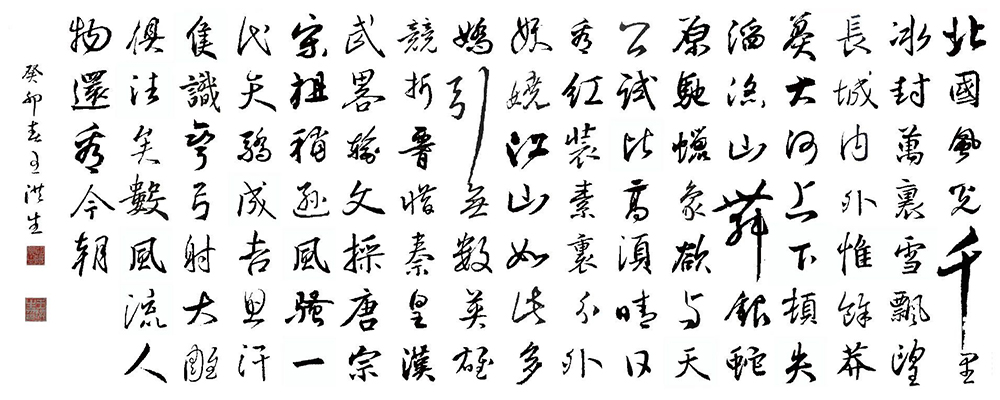 北國風光千里
冰封萬裏雪飄望
長城內外惟餘莽
莽大河上下頓失
滔滔山舞銀蛇
原馳蠟象欲与天
公試比高須晴日
看紅裝素裹分外
妖嬈江山如此多
嬌引無數英雄
競折腰惜秦皇漢
武畧輸文採唐宗
宋祖稍遜風騷一
代天驕成吉思汗
隻識彎弓射大雕
俱往矣數風流人
物還看今朝
癸卯春王洪生